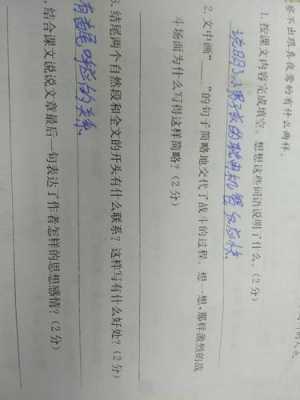 1. 按课文内容完成填空。想想这些词语说明了什么。(2分)
说明小男孩的聪明机智勇敢
2. 文中画"____"的句子简略地交代了战斗的过程。想一想,那样激烈的战
斗场面为什么写得这样简略?(2分)
3. 结尾两个自然段和全文的开头有什么联系?这样写有什么好处?(2分)
有首尾呼应的关系
结合课文说说文章最后一句表达了作者怎样的思想感情?(2分)